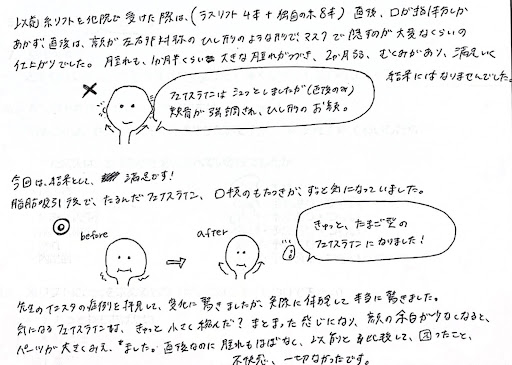 以前 糸リフトを他院で受けた際は、(ラスリフト4本+独自の糸8本) 直後、口が指1本分しか
あかず直後は、顔が左右非対称のひし形のような形で、マスクで隠すのが大変なくらいの
仕上がりでした。腫れも、1か月半くらい大きな腫れがつづき、2か月弱、むくみがあり、満足いく
結果にはなりませんでした。
フェイスラインはシュッとしましたが(直後のみ)
頬骨が強調され、ひし形のお顔。
今回は、結果として、満足です!
脂肪吸引後で、たるんだフェイスライン、口横のもたつきが、ずっと気になっていました。
before
after
きゅっと、たまご型の
フェイスラインになりました!
先生のインスタの症例を拝見して、変化に驚きましたが、実際に体験して本当に驚きました。
気になるフェイスラインは、きゅっと小さく縮んだ?まとまった感じになり、顔の余白が少なくなると、
パーツが大きくみえました。直後なのに腫れもほぼなく、以前と比較して、困ったこと、
不快感、一切なかったです。